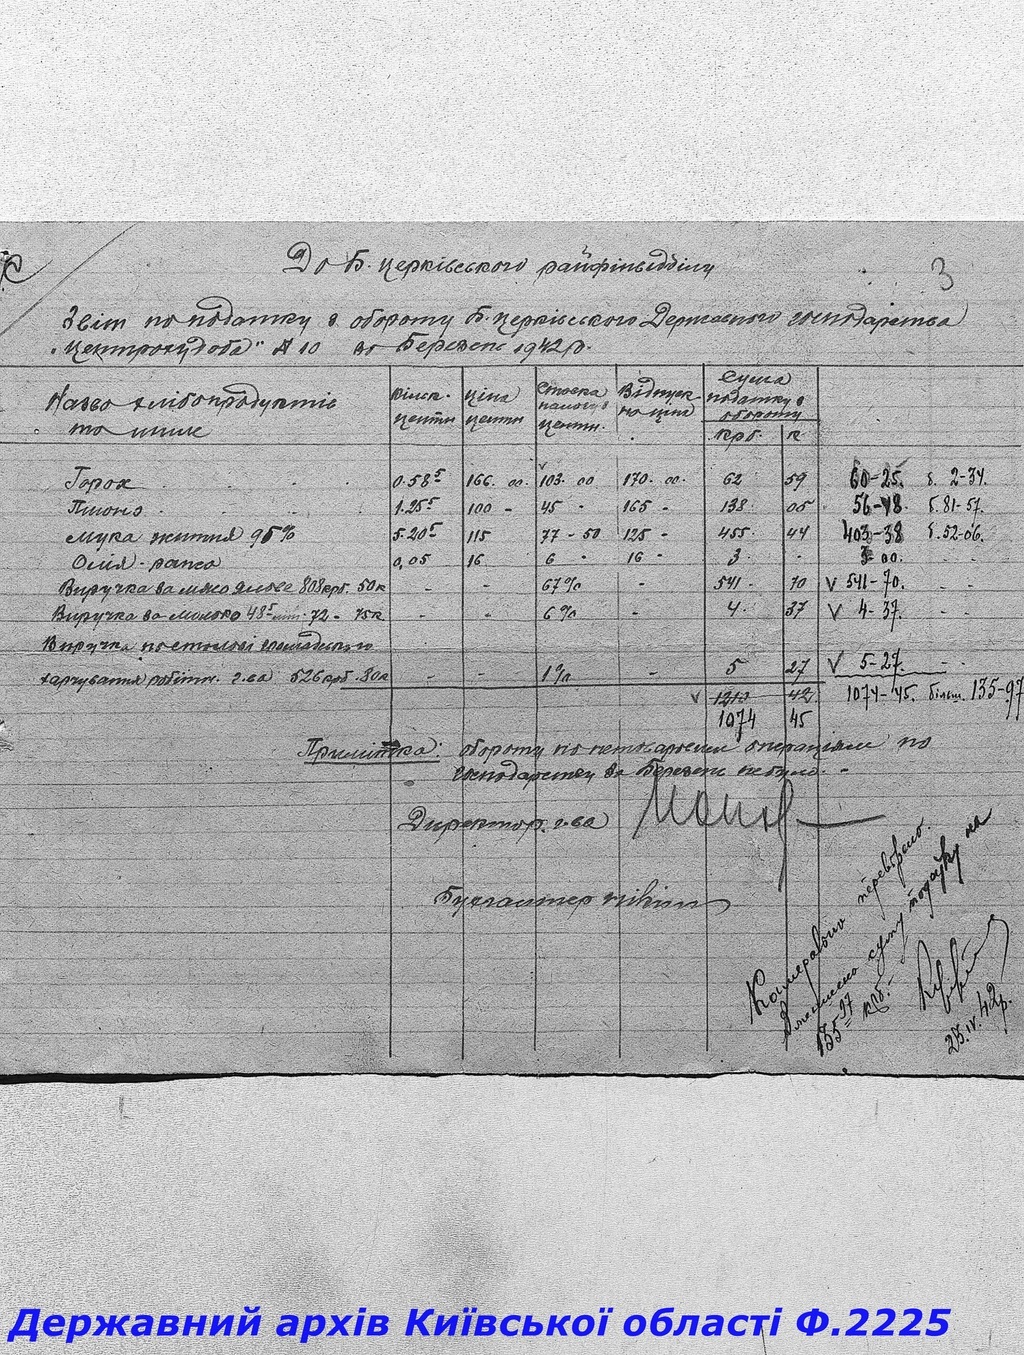 3
До Б. Церківського райфінвідділу
Звіт по податку з обороту Б. Церківського Державного господарства
"Центрохудоба" № 10 за Березень 1942 р.
Назва хлібопродуктів та инше | Кільк. центн | Ціна центн | Ставка податку центн. | Відпускна ціна | Сума податку з обороту крб. к.
Горох . . . 0.58⁵ 166. 00. 103. 00 170. 00. 62 59 60-25. б. 2-34.
Пшоно . . . 1.25⁵ 100 - 45 - 165 - 138. 05 56-48 б. 81-57.
Мука житня 95% 5.20⁵ 115 77-50 125 - 455. 44 403-38 б. 52-06.
Олія - рапса 0,05 16 6 - 16 - 3. - 3-00. - -
Виручка за мясо ялове 808 крб. 50к - - 67% - 541- 70 V 541-70. - -
Виручка за молоко 48⁵ літ. 72 - 75к - - 6% - 4. 37 V 4-37. -
Виручка по столові громадського
харчування робітн. г-ва 526 крб. 80к - - 1% - 5 27 V 5-27. - -
V 1210 42. 1074-45. більш. 135-97
1074 45
Примітка: обороту по нетоваровим операціям по
господарству за Березень не було. -
Директор г-ва
Бухгалтер
Камерально перевірено.
Зменшено суму податку на
135⁹⁷ крб. -
23.IV.42р.
Державний архів Київської області Ф.2225